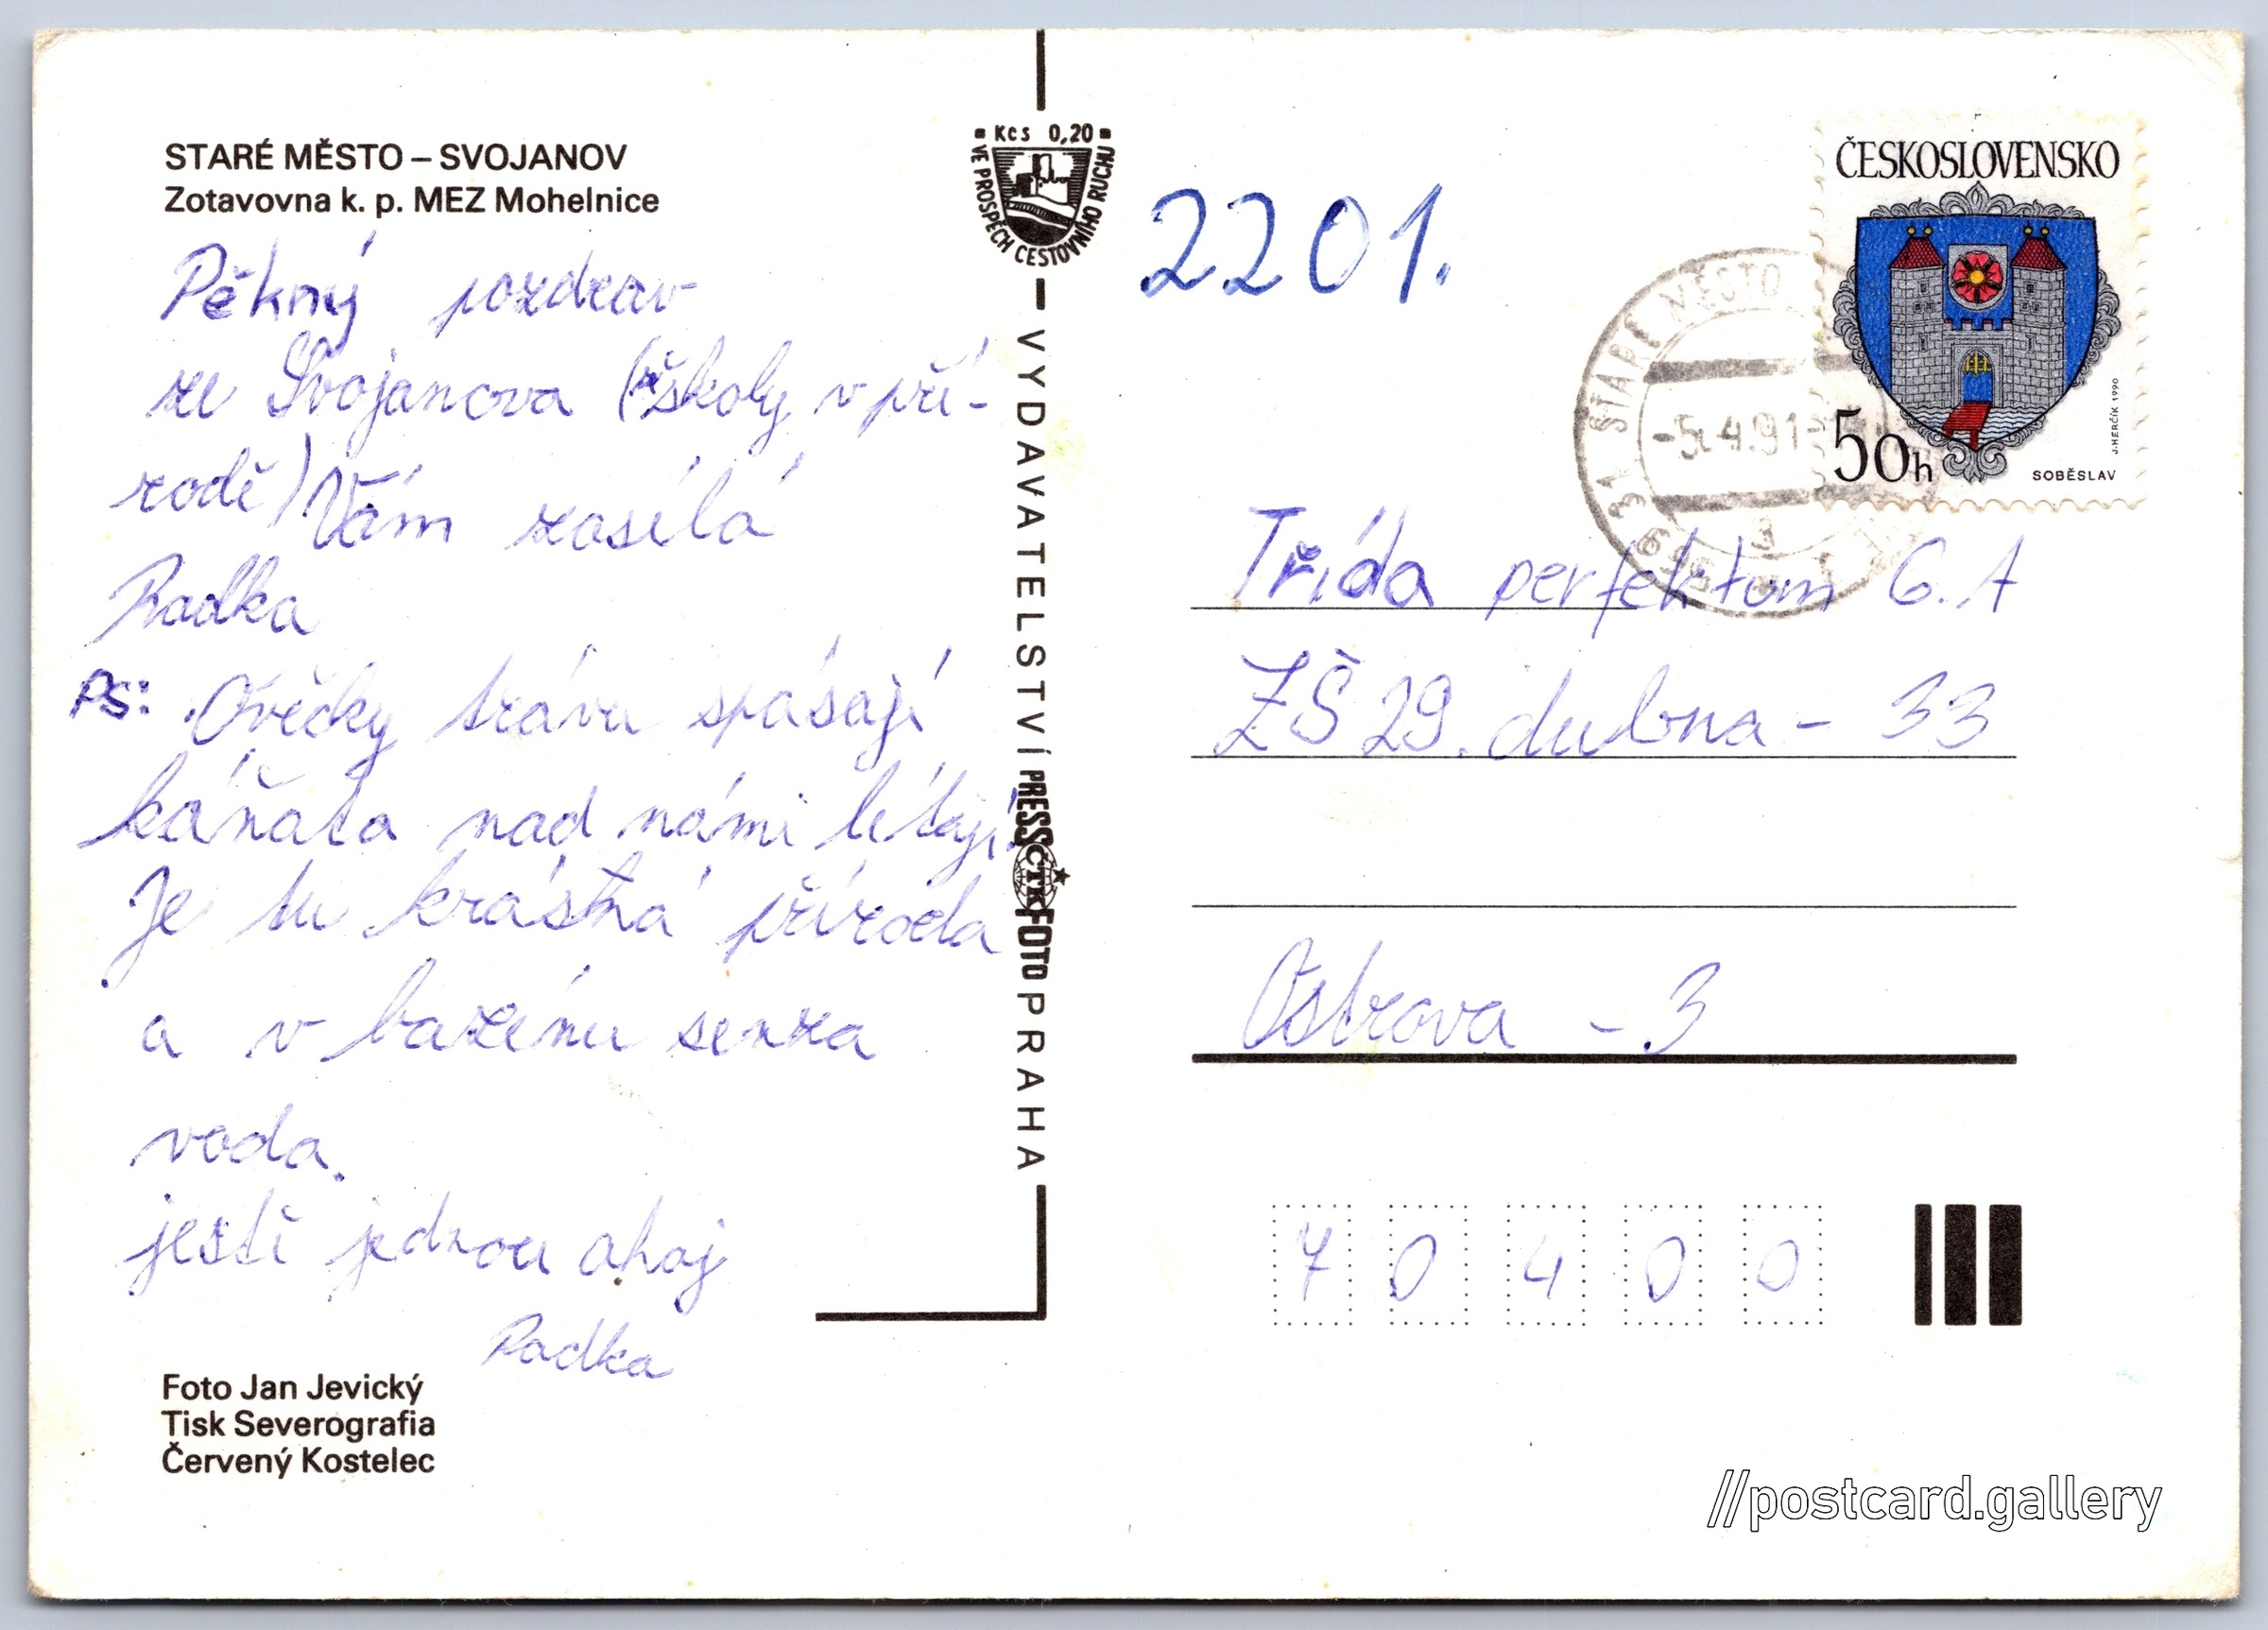 STARÉ MĚSTO – SVOJANOV
Zotavovna k. p. MEZ Mohelnice
Pěkný pozdrav
ze Svojanova (školy v pří-
rodě) Vám zasílá
Radka
PS: Ovečky trávu spásají
káňata nad námi létají.
Je tu krásná příroda
a v bazénu senza
voda.
ještě jednou ahoj
Radka
Foto Jan Jevický
Tisk Severografia
Červený Kostelec
Kčs 0,20
VE PROSPĚCH CESTOVNÍHO RUCHU
VYDAVATELSTVÍ PRESSČTKFOTO PRAHA
2201.
ČESKOSLOVENSKO
50h
SOBĚSLAV
J.HERČÍK 1990
STARÉ MĚSTO
-5.4.91-
Třída perfektum 6.A
ZŠ 29. dubna - 33
Ostrava - 3
704 00
//postcard.gallery